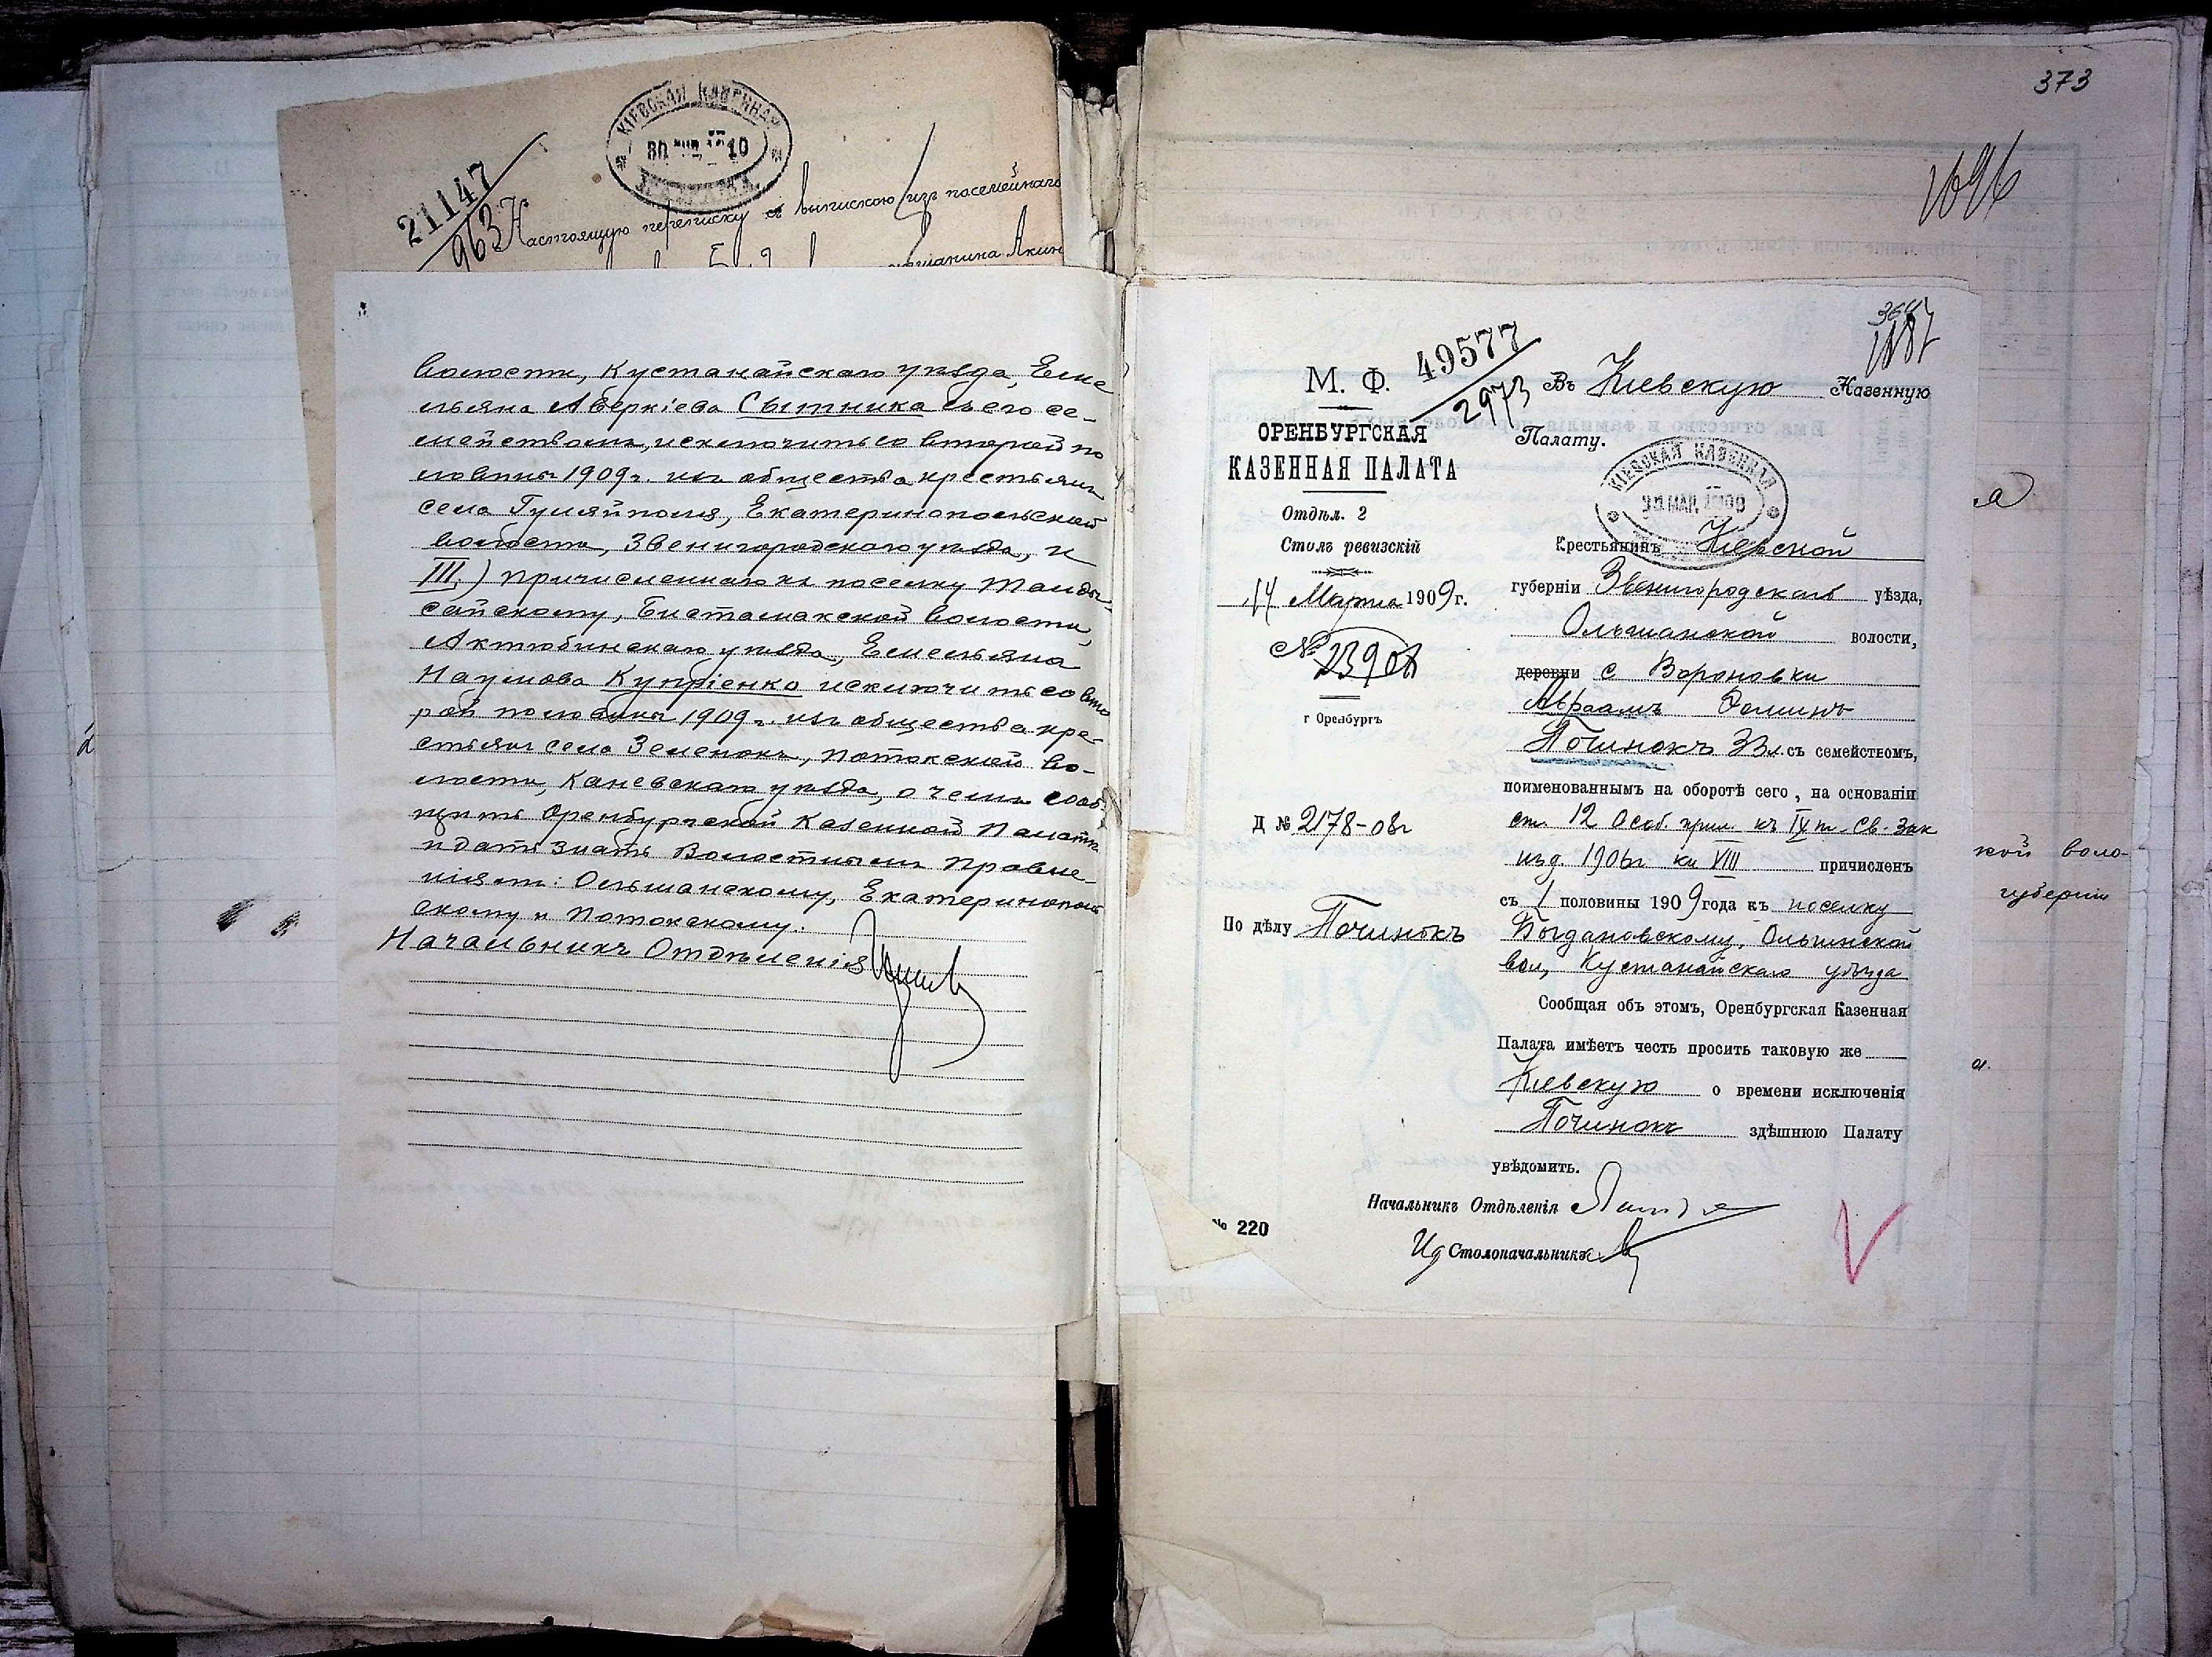 КІЕВСКАЯ КАЗЕННАЯ
21147
963
Настоящую переписку съ выпискою изъ посемейнаго
Акин
волости, Кустанайскаго уѣзда, Еме
льяна Аверкіева Сытника съ его се-
мействомъ, исключить со второй по
ловины 1909 г. изъ общества крестьянъ
села Гуляйполя, Екатеринопольской
волости, Звенигородскаго уѣзда, и
III,) причисленнаго къ поселку Танды-
сайскому, Бистамакской волости,
Актюбинскаго уѣзда, Емельяна
Наумова Купріенко исключить со вто
рой половины 1909 г. изъ общества кре-
стьянъ села Зеленокъ, Потокской во-
лости, Каневскаго уѣзда, о чемъ сооб
щить Оренбургской Казенной Палатѣ
и дать знать Волостнымъ Правле-
ніямъ: Ольшанскому, Екатеринополь
скому и Потокскому.
Начальникъ Отдѣленія
373
1696
364
М. Ф.
49577
2973
Въ Кіевскую Казенную
Палату.
ОРЕНБУРГСКАЯ
КАЗЕННАЯ ПАЛАТА
КІЕВСКАЯ КАЗЕННАЯ
Отдѣл. 2
Столъ ревизскій
14 Марта 1909 г.
№ 23908
г Оренбургъ
Крестьянинъ Кіевской
губерніи Звенигородскаго уѣзда,
Ольшанской волости,
деревни с Вороновки
Авраамъ Фоминъ
Починокъ 33 л. съ семействомъ,
поименованнымъ на оборотѣ сего, на основаніи
Д № 2178-08г
ст. 12 Особ прил. къ IX т. Св. Зак
изд. 1906г кн VIII причисленъ
съ 1 половины 1909 года къ поселку
По дѣлу Починокъ
Богдановскому, Ольшинской
вол, Кустанайскаго уѣзда
Сообщая объ этомъ, Оренбургская Казенная
Палата имѣетъ честь просить таковую же
Кіевскую о времени исключенія
Починокъ здѣшнюю Палату
увѣдомить.
Начальникъ Отдѣленія
№ 220
Ид Столоначальника
кой воло-
губерніи